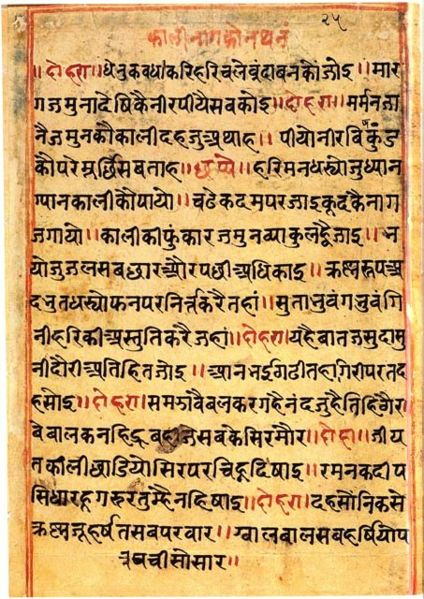 २५
कालीनागकोनथनं
॥दोहरा॥धेनुकवधकरिहरिचलेबृंदाबनकौजोइ॥मार
गजमुनादेषिकैनीरपीयैसबकोइ॥दोहरा॥मर्मनजा
नैजमुनकौकालीदहजुअथाह॥पीयोनीरबि
कौपरेमुर्छिसबताह॥छप्पे॥हरिमनधस्योजुध्यान
ग्यानकालीकौपायो॥चढेकदमपरजाइकूदकैनाग
जगायो॥कालीकीफुंकारजमुनब्याकुलह्वैजाइ॥भ
योजुजलसबछारऔरपछीअधिकाइ॥कृष्णरूपअ
दभुतधस्योफनपरनिर्त्तकरैतहां॥सुताभुवंगभुवंगि
नीहरिकीअस्तुतिकरैजहां॥दोहरा॥यहैबातजसुदासु
नीदौरीअतिहितजोइ॥आनभईगठीतहागिरीपरतद
हसोइ॥दोहरा॥
बेबालकनहि सबकेसिरमौर॥दोहा॥जीय
तकालीछाडियोसिरपरचिह्नदिषाइ॥रमनकदीप
सिधारहूगरुरतुम्हैनहिषाइ॥दोहरा॥दहसौनिकसे
कृष्णजूहर्षतसबपरवार॥ग्वालबालसबहर्षियोप